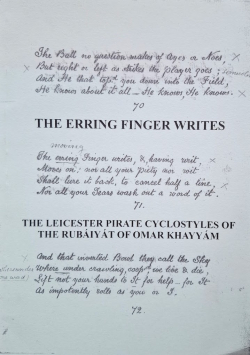 The Ball no question makes of Ayes or Noes,
But right or left as strikes the Player goes;
And He that toss'd you down into the Field,
He knows about it all — He knows, He knows.
70
THE ERRING FINGER WRITES
moving
The erring Finger writes, &, having writ,
Moves on; nor all your Piety nor wit
Shall lure it back, to cancel half a line,
Nor all your Tears wash out a word of it.
71.
THE LEICESTER PIRATE CYCLOSTYLES OF
THE RUBÁIYÁT OF OMAR KHAYYÁM
And that inverted Bowl they call the Sky
Where under crawling, coop'd we live & die,
Lift not your hands to It for help — for It
As impotently rolls as you or I.
72.